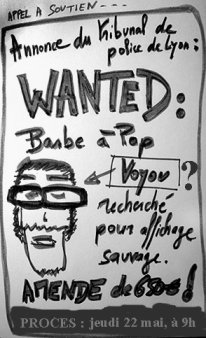 APPEL À SOUTIEN...
Annonce du tribunal de
police de Lyon :
WANTED:
Barbe à Pop
Voyou ?
recherché
pour affichage
sauvage.
AMENDE de €!
PROCES : jeudi 22 mai, à 9h